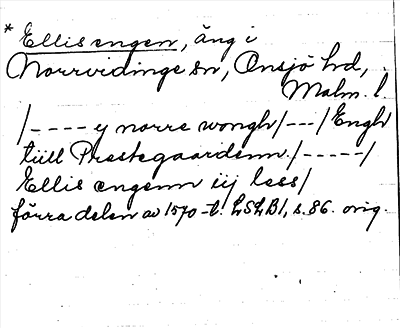 * Ellis engen, äng i
Norrvidinge sn, Onsjö hd,
Malm. l.
/---- y norre wongh/---/Engh
tiill Prestegaardenn/-----/
Ellis engenn iij less/
förra delen av 1570-t. LSLB1, s. 86. orig.